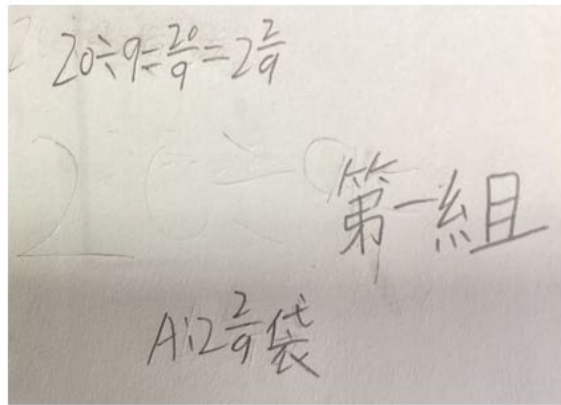 20÷9=20/9=2 2/9
20÷9
第一組
A:2 2/9袋